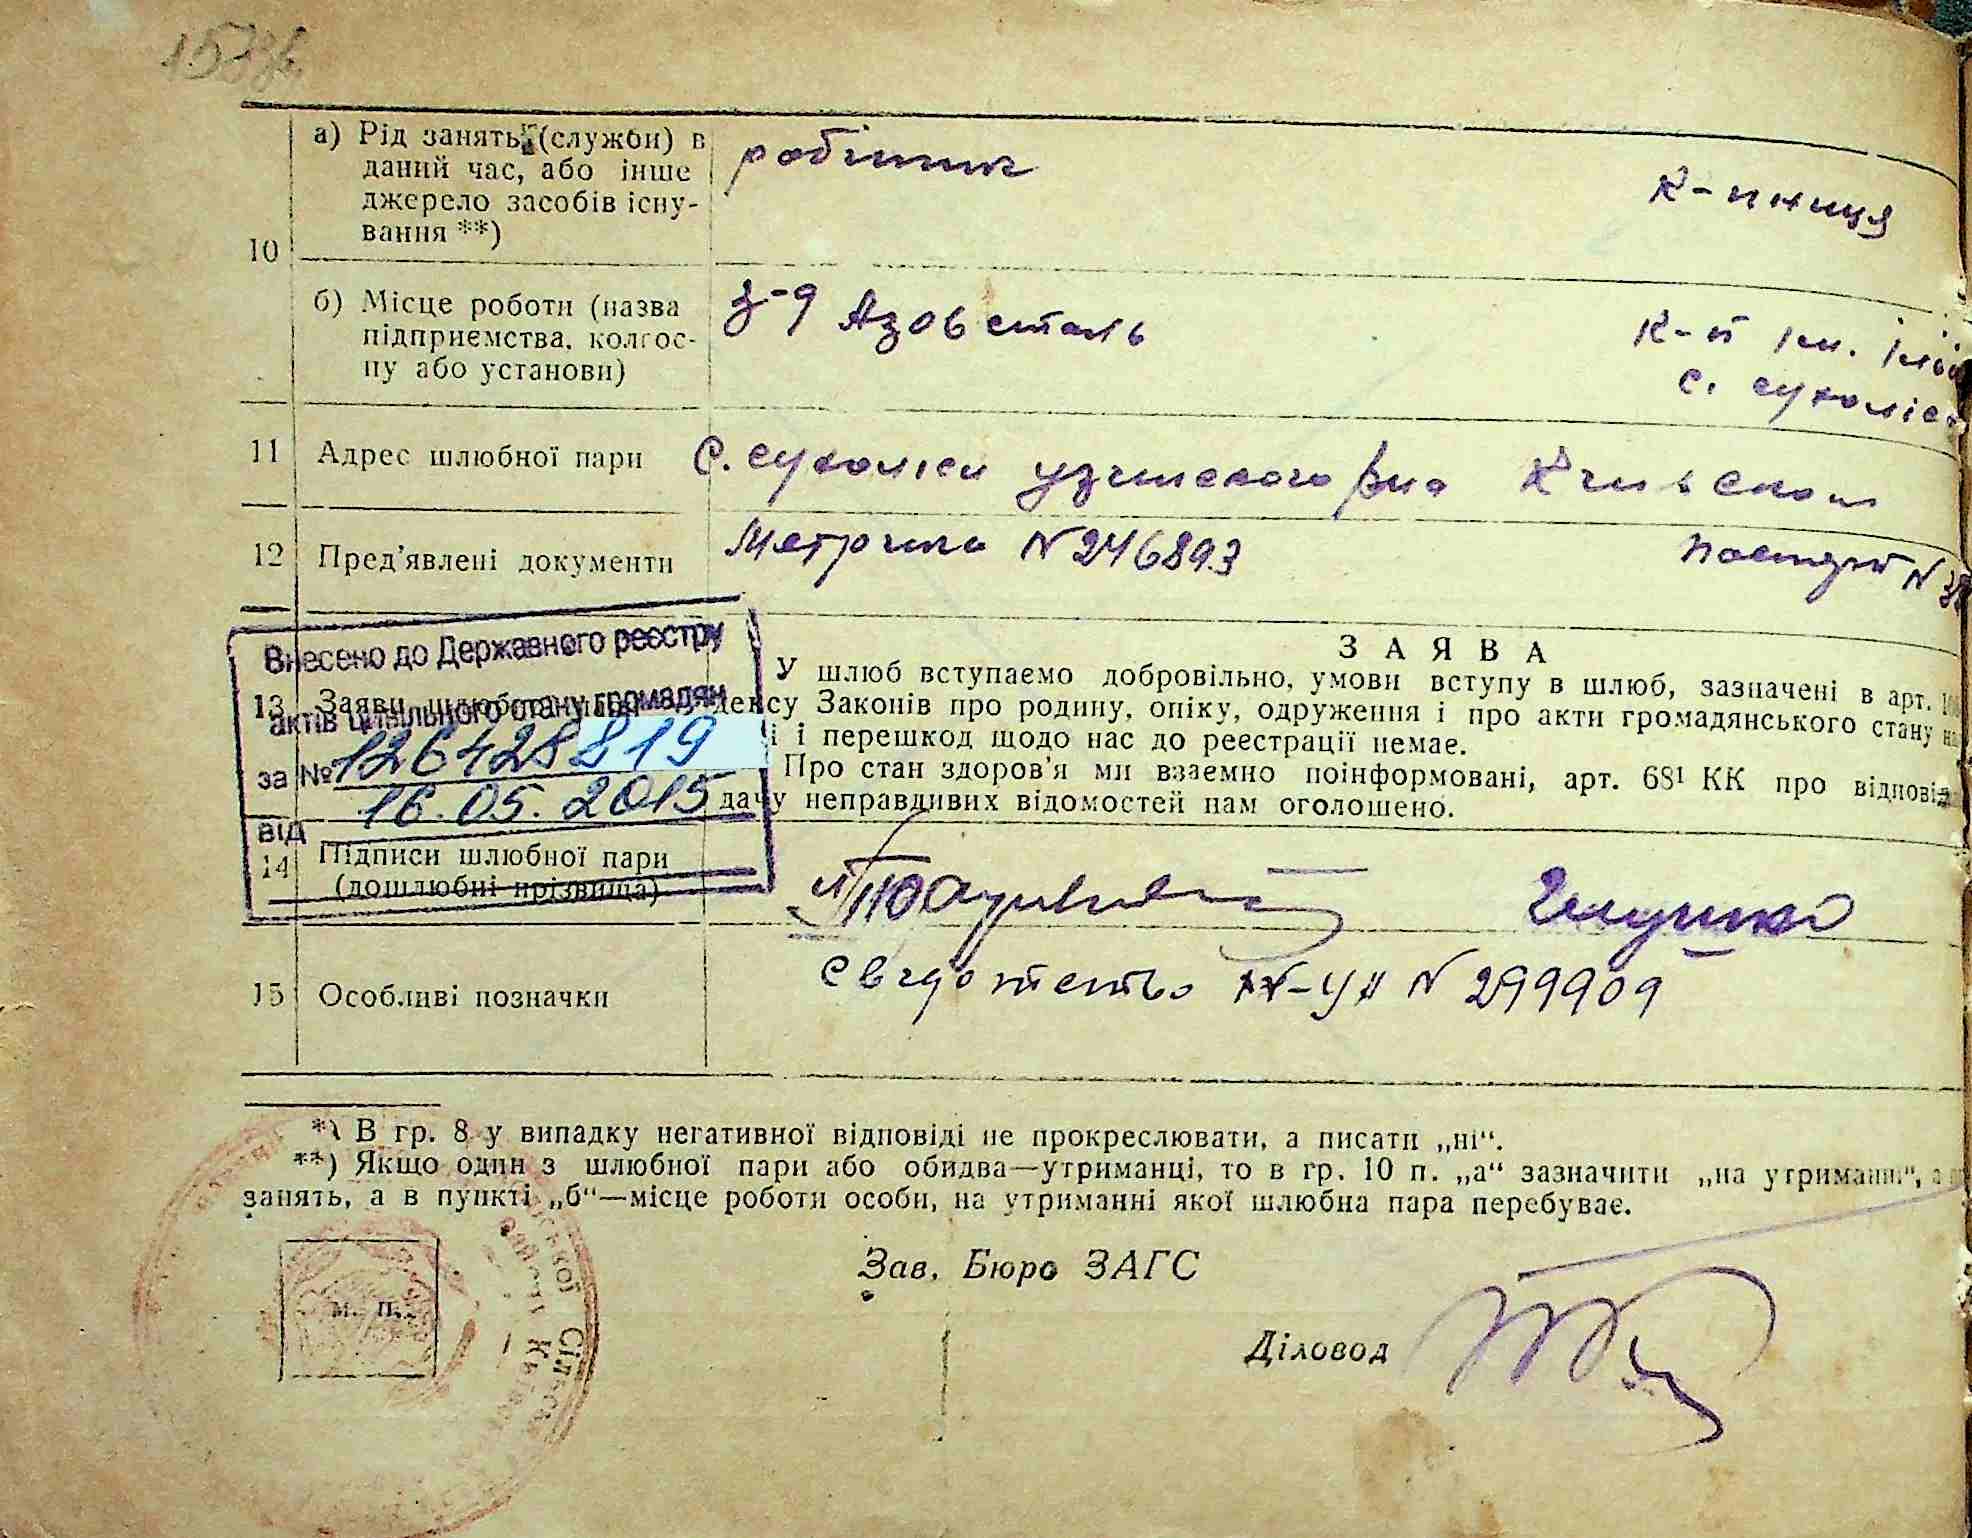 а) Рід занять (служби) в
даний час, або інше
джерело засобів існу-
вання **)
робітник
К-пниця
10
б) Місце роботи (назва
підприємства, колгос-
пу або установи)
з-д Азовсталь
К-п ім.
с. сухоліс
11 Адрес шлюбної пари
с. сухоліси узинского р-на Київской
12 Пред’явлені документи
Метрика N 246893
паспорт N
Внесено до Державного реєстру
актів цивільного стану громадян
за № 126428819
від 16.05.2015
ЗАЯВА
13 Заяви шлюбної пари
У шлюб вступаємо добровільно, умови вступу в шлюб, зазначені в арт.
дексу Законів про родину, опіку, одруження і про акти громадянського стану
і і перешкод щодо нас до реестрації немає.
Про стан здоров’я ми взаємно поінформовані, арт. 68¹ КК про відпові
дачу неправдивих відомостей нам оголошено.
14 Підписи шлюбної пари
(дошлюбні прізвища)
Глушко
15 Особливі позначки
N 299909
*) В гр. 8 у випадку негативної відповіді не прокреслювати, а писати „ні“.
**) Якщо один з шлюбної пари або обидва—утриманці, то в гр. 10 п. „а“ зазначити „на утриманні“, а
занять, а в пункті „б“—місце роботи особи, на утриманні якої шлюбна пара перебуває.
Зав. Бюро ЗАГС
м. п.
Діловод